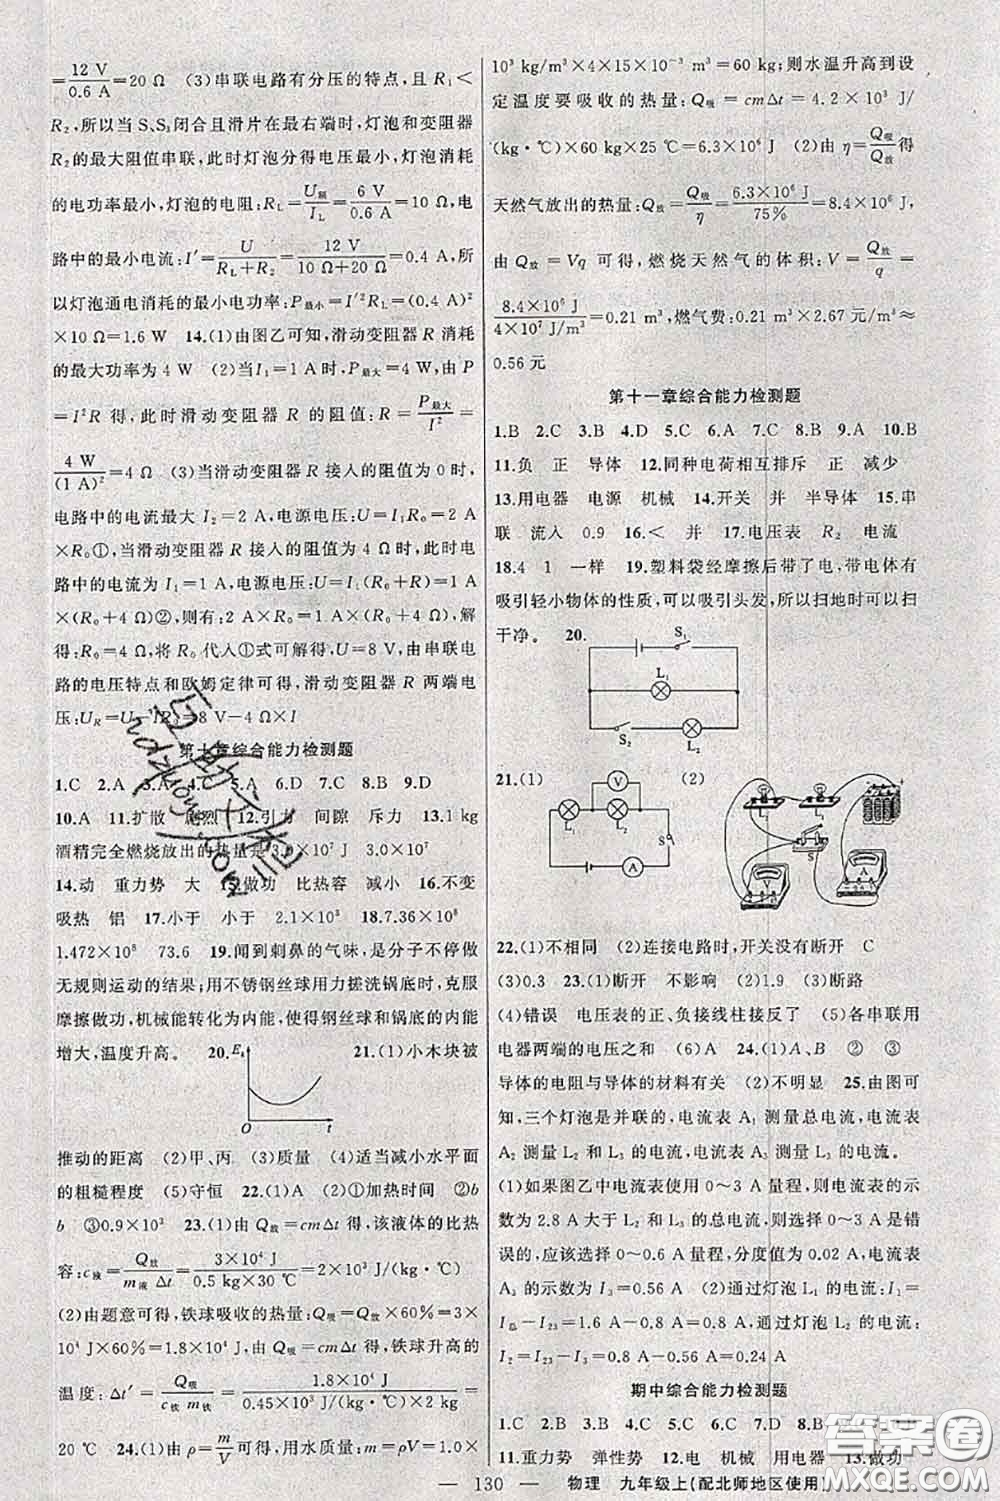 =12 V/0.6 A=20 Ω　(3)串联电路有分压的特点,且 R_L＜
R₂,所以当 S、S₃闭合且滑片在最右端时,灯泡和变阻器
R₂的最大阻值串联,此时灯泡分得电压最小,灯泡消耗
的电功率最小,灯泡的电阻:R_L=U额/I_L=6 V/0.6 A=10 Ω,电
路中的最小电流:I′=U/(R_L+R₂)=12 V/(10 Ω+20 Ω)=0.4 A,所
以灯泡通电消耗的最小电功率:P最小=I′²R_L=(0.4 A)²
×10 Ω=1.6 W　14.(1)由图乙可知,滑动变阻器 R 消耗
的最大功率为 4 W　(2)当 I₁=1 A时,P最大=4 W,由 P
=I²R 得,此时滑动变阻器 R 的阻值:R=P最大/I²=
4 W/(1 A)²=4 Ω　(3)当滑动变阻器 R 接入的阻值为 0 时,
电路中的电流最大 I₂=2 A,电源电压:U=I₁R₀=2 A
×R₀①,当滑动变阻器 R 接入的阻值为 4 Ω时,此时电
路中的电流为 I₁=1 A,电源电压:U=I₁(R₀+R)=1 A
×(R₀+4 Ω)②,则有:2 A×R₀=1 A×(R₀+4 Ω),解
得:R₀=4 Ω,将 R₀代入①式可解得:U=8 V,由串联电
路的电压特点和欧姆定律可得,滑动变阻器 R 两端电
压:U_R=U-IR₀=8 V-4 Ω×I
第十章综合能力检测题
1.C　2.A　3.A　4.C　5.A　6.D　7.C　8.B　9.D
10.A　11.扩散　剧烈　12.引力　间隙　斥力　13.1 kg
酒精完全燃烧放出的热量是3.0×10⁷ J　3.0×10⁷
14.动　重力势　大　15.做功　比热容　减小　16.不变
吸热　铝　17.小于　小于　2.1×10³　18.7.36×10⁸
1.472×10⁸　73.6　19.闻到刺鼻的气味,是分子不停做
无规则运动的结果;用不锈钢丝球用力搓洗锅底时,克服
摩擦做功,机械能转化为内能,使得钢丝球和锅底的内能
增大,温度升高。　20.　21.(1)小木块被
E　O　t
推动的距离　(2)甲、丙　(3)质量　(4)适当减小水平面
的粗糙程度　(5)守恒　22.(1)A　(2)①加热时间　②b
b　③0.9×10³　23.(1)由 Q放=cmΔt 得,该液体的比热
容:c液=Q放/(m液 Δt)=3×10⁴ J/(0.5 kg×30 ℃)=2×10³ J/(kg·℃)
(2)由题意可得,铁球吸收的热量:Q吸=Q放×60%=3×
10⁴ J×60%=1.8×10⁴ J,由 Q吸=cmΔt 得,铁球升高的
温度:Δt′=Q吸/(c铁 m铁)=1.8×10⁴ J/(0.45×10³ J/(kg·℃)×2 kg)=
20 ℃　24.(1)由 ρ=m/V可得,用水质量:m=ρV=1.0×
10³ kg/m³×4×15×10⁻³ m³=60 kg;则水温升高到设
定温度要吸收的热量:Q吸=cmΔt=4.2×10³ J/
(kg·℃)×60 kg×25 ℃=6.3×10⁶ J　(2)由 η=Q吸/Q放得
天然气放出的热量:Q放=Q吸/η=6.3×10⁶ J/75%=8.4×10⁶ J,
由 Q放=Vq 可得,燃烧天然气的体积:V=Q放/q=
8.4×10⁶ J/(4×10⁷ J/m³)=0.21 m³,燃气费:0.21 m³×2.67 元/m³≈
0.56 元
第十一章综合能力检测题
1.B　2.C　3.B　4.D　5.C　6.A　7.C　8.B　9.A　10.B
11.负　正　导体　12.同种电荷相互排斥　正　减少
13.用电器　电源　机械　14.开关　并　半导体　15.串
联　流入　0.9　16.＜　并　17.电压表　R₂　电流
18.4　1　一样　19.塑料袋经摩擦后带了电,带电体有
吸引轻小物体的性质,可以吸引头发,所以扫地时可以扫
干净。　20.
S₁　L₁　S₂　L₂
21.(1)　(2)
V　L₁　L₂　S　A
L₁　L₂　S　V　A
22.(1)不相同　(2)连接电路时,开关没有断开　C
(3)0.3　23.(1)断开　不影响　(2)1.9　(3)断路
(4)错误　电压表的正、负接线柱接反了　(5)各串联用
电器两端的电压之和　(6)A　24.(1)A、B　②　③
导体的电阻与导体的材料有关　(2)不明显　25.由图可
知,三个灯泡是并联的,电流表 A₁ 测量总电流,电流表
A₂ 测量 L₂ 和 L₃ 的电流,电流表 A₃ 测量 L₃ 的电流。
(1)如果图乙中电流表使用 0～3 A 量程,则电流表的示
数为 2.8 A 大于 L₂ 和 L₃ 的总电流,则选择 0～3 A 是错
误的,应该选择 0～0.6 A 量程,分度值为 0.02 A,电流表
A₃ 的示数为 I₃=0.56 A　(2)通过灯泡 L₁ 的电流:I₁=
I总-I₂₃=1.6 A-0.8 A=0.8 A,通过灯泡 L₂ 的电流:
I₂=I₂₃-I₃=0.8 A-0.56 A=0.24 A
期中综合能力检测题
1.C　2.B　3.B　4.B　5.C　6.C　7.D　8.B
11.重力势　弹性势　12.电　机械　用电器　13.做功
— 130 —　物理　九年级上(配北师地区使用)
答案圈
MXQE.COM